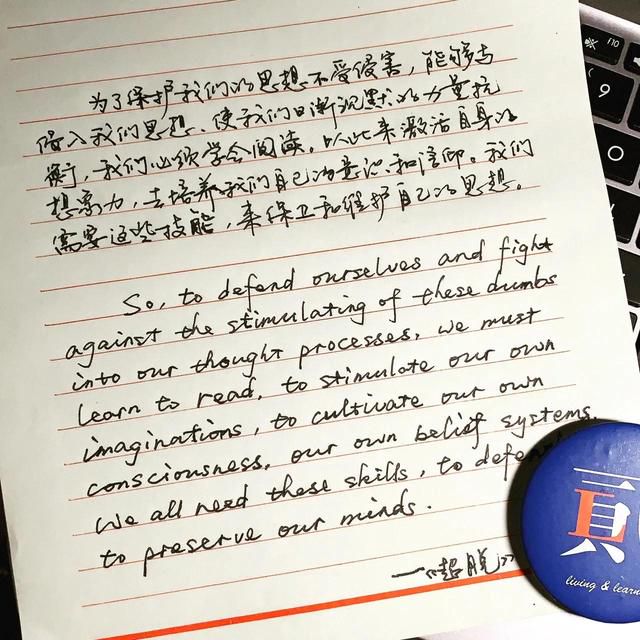 为了保护我们的思想不受侵害，能够与
侵入我们思想、使我们日渐沉默的力量抗
衡，我们必须学会阅读。以此来激活自身的
想象力，去培养我们自己的意识和信仰。我们
需要这些技能，来保卫和维护自己的思想。
So, to defend ourselves and fight
against the stimulating of these dumbs
into our thought processes, we must
learn to read, to stimulate our own
imaginations, to cultivate our own
consciousness, our own belief systems.
We all need these skills, to defen
to preserve our minds.
—《超脱》
living & learn
F10
9
O